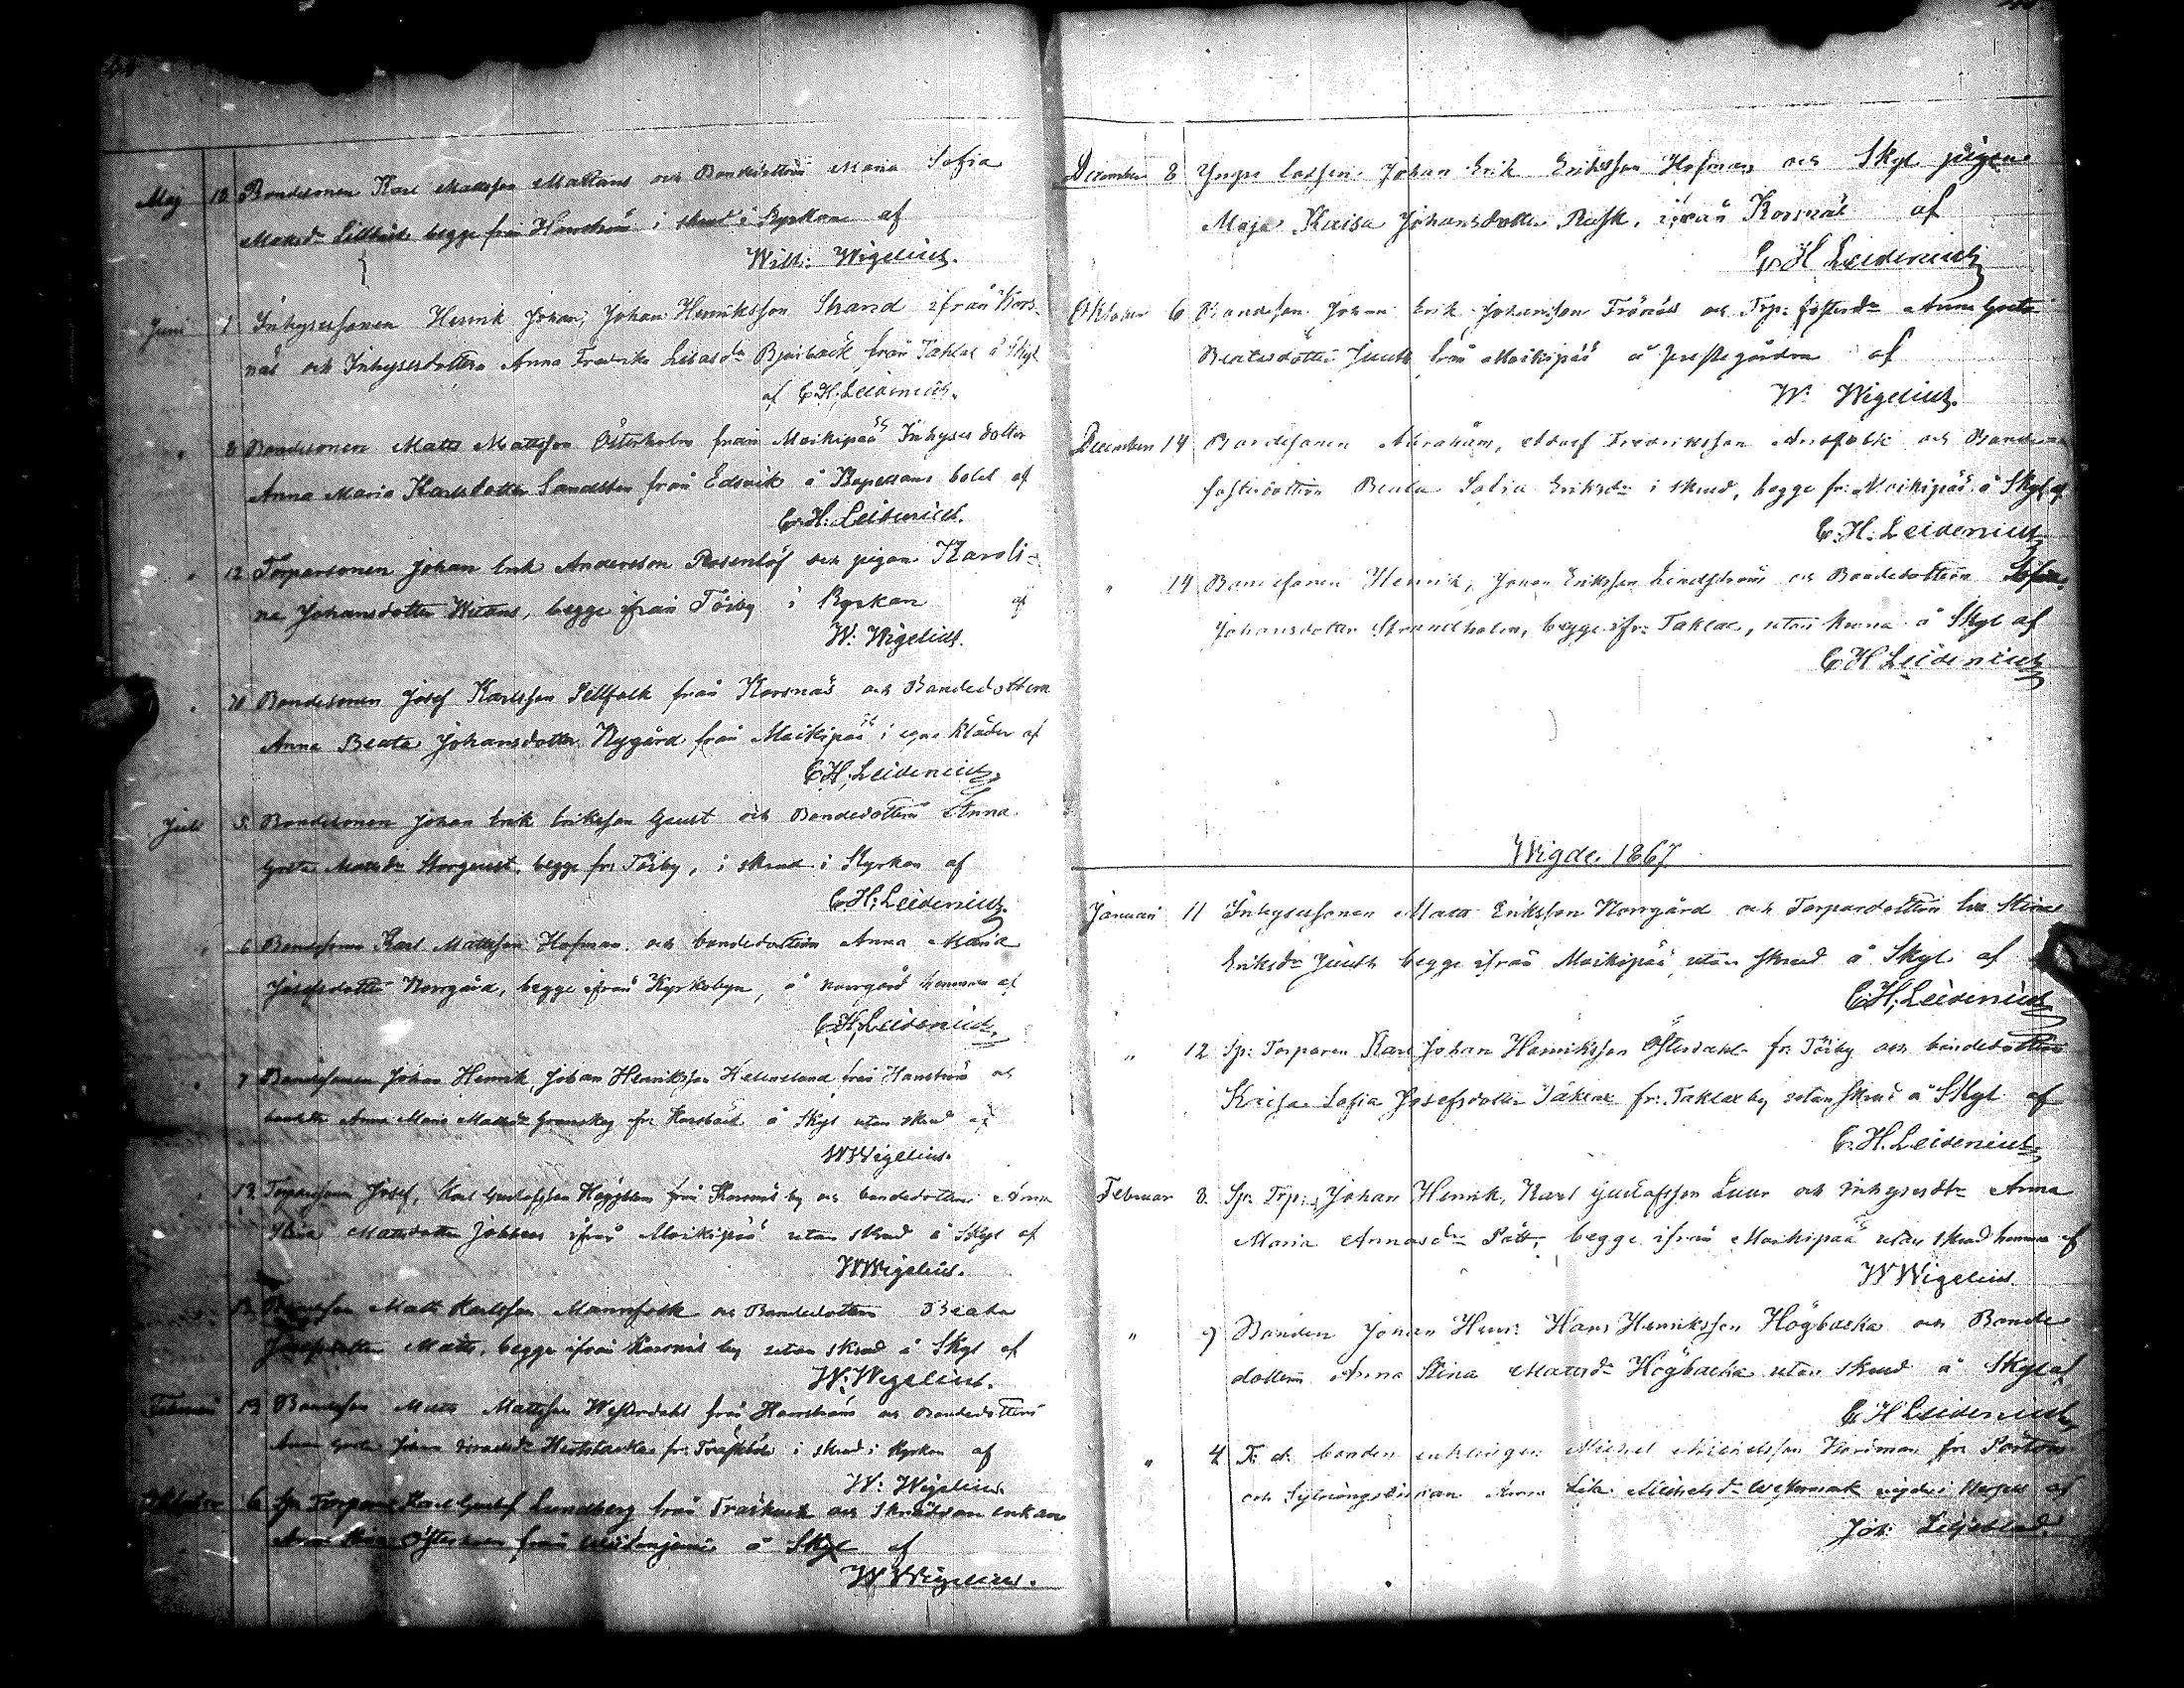 Maj 10 Bondesonen Karl Mattsson Mattans och Bondedottren Maria Sofia
Matsdr Lillbäck begge från Harrström i skrud i Kyrkan af
Will: Wigelius.
Juni 1 Inhysessonen Henrik Johan, Johan Henriksson Strand ifrån Kors-
näs och Inhysesdottern Anna Fredrika Lisasdr Bjurbäck från Taklax å Skyl
af E.H. Leidenius.
" 8 Bondesonen Matts Mattsson Österholm från Moikipää Inhyses dotter
Anna Maria Karlsdotter Sandsten från Edsvik å Kapellans bolet af
E.H. Leidenius.
" 12 Torparsonen Johan Erik Andersson Rosenlöf och pigan Karoli-
na Johansdotter Witans, begge ifrån Töjby i Kyrkan af
W. Wigelius.
" 20 Bondesonen Josef Karlsson Sillfolk från Korsnäs och Bondedottern
Anna Beata Johansdotter Nygård från Moikipää i egna kläder af
E.H. Leidenius
Juli 5 Bondesonen Johan Erik Eriksson Geust och Bondedottren Anna
Greta Matsdr Storgeust, begge fr: Töjby, i skrud i Kyrkan af
E.H. Leidenius.
" 6 Bondesonen Karl Mattsson Hofman och bondedottren Anna Maria
Josefsdotter Norrgård, begge ifrån Kyrkobyn, å Norrgård hemman af
E.H. Leidenius.
" 7 Bondesonen Johan Henrik, Johan Henriksson från Harrström och
Anna Maria Matsdr fr: Korsbäck å Skyl utan skrud af
W Wigelius.
" 13 Torparesonen Josef, Karl Gustafsson Häggblom från Korsnäs by och bondedottren Anna
Stina Mattsdotter ifrån Moikipää utan skrud å Skyl af
W Wigelius.
13 Bondeson Matts Karlsson Mannfolk och Bondedottern Beata
Josefsdotter Matts, begge ifrån Korsnäs by utan skrud å Skyl af
W: Wigelius.
Februari 13 Bondeson Matts Mattsson Westerdahl från Harrström och Bondedottren
Anna Greta Johan fr: Träskböle i skrud i Kyrkan af
W: Wigelius
Oktober 6 Sp: Torparen Karl Gustaf Lundberg från och enkan
Anna Stina från å Skyl af
W Wigelius.
December 8 Yngre Johan Erik Eriksson Hofman och Skyl pigan
Maja Kaisa Johansdotter Rusk, ifrån Korsnäs af
E.H. Leidenius
Oktober 6 Bondeson Johan Erik Johansson Trönäs och Trp: fosterdr Anna Greta
Beatasdotter Juuth från Moikipää å prestgården af
W. Wigelius.
December 14 Bondesonen Abraham, Adolf Fredriksson och Bonde
fosterdottren Beata Sofia Eriksdr i skrud, begge fr: Moikipää å Skyl af
E.H. Leidenius
" 14 Bondesonen Henrik, Johan Eriksson Lindström och Bondedottren Sofia
Johansdotter Strandholm, begge ifr: Taklax, utan krona å Skyl af
E H Leidenius
Wigde. 1867
Januari 11 Inhysessonen Matts Eriksson Norrgård och Torpardottren Eva Stina
Eriksdr Juuth begge ifrån Moikipää utan skrud å Skyl af
E.H. Leidenius
" 12 Sp: Torparen Karl Johan Henriksson Österdahl fr: Töjby och bondedottren
Kaisa Sofia Josefsdotter Taklax fr: Taklax by utan skrud å Skyl af
E.H. Leidenius
Februar 8 Sp: Trp: Johan Henrik, Karl Gustafsson Luur och inhysesdtr Anna
Maria Annasdr Pått, begge ifrån Moikipää utan skrud hemma af
W Wigelius
" 9 Bonden Johan Henr: Hans Henriksson Högbacka och Bonde
dottern Anna Stina Matsdr Högbacka utan skrud å Skyl af
E H Leidenius
" 4 F. d. bonden enklingen Michel Michelsson Nordman fr: Pörtom
och Anna Lisa Michelsdr Westermark vigde i Kyrkan af
Joh: Liljeblad.